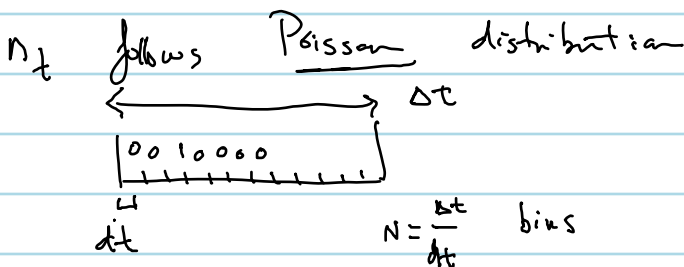 n_t follows Poisson distribution
Δt
0 0 1 0 0 0 0
dt N = Δt/dt bins